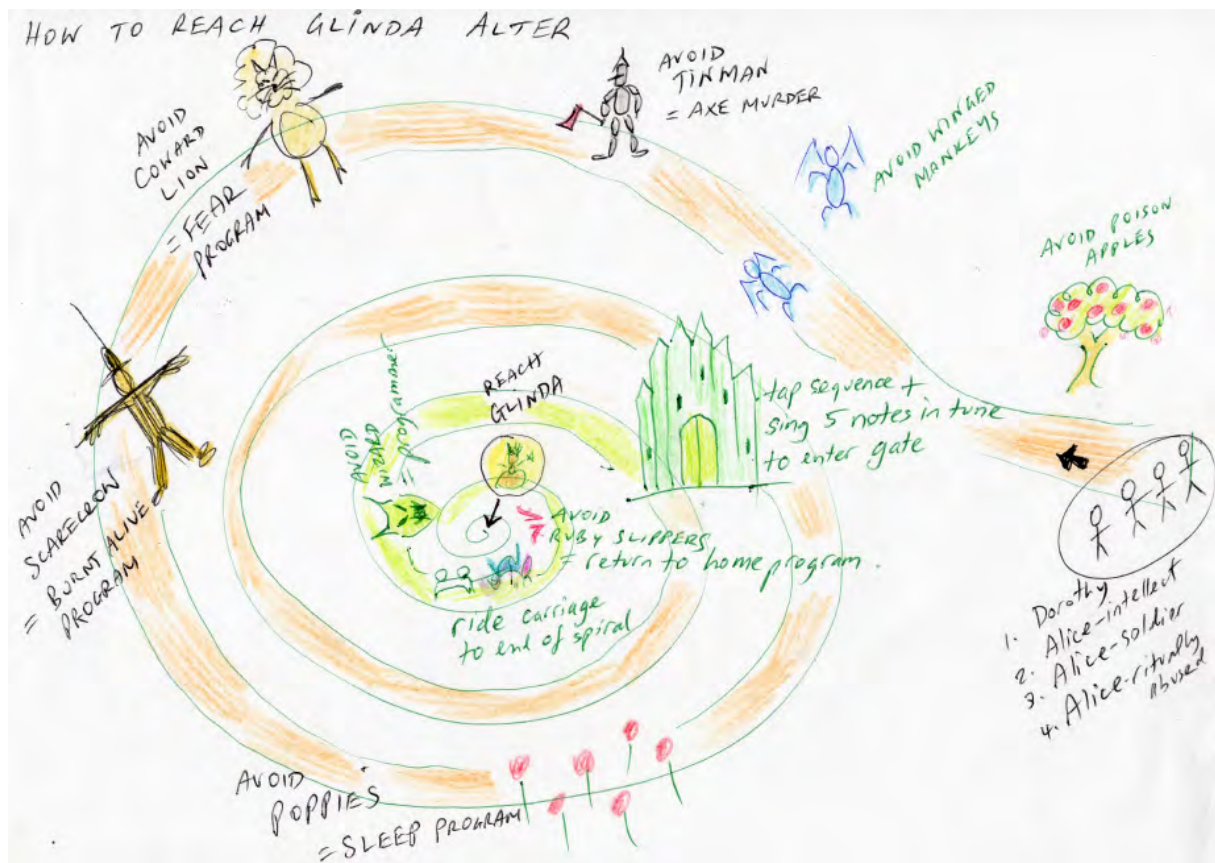 HOW TO REACH GLINDA ALTER
AVOID
COWARD
LION
= FEAR
PROGRAM
AVOID
TINMAN
= AXE MURDER
AVOID WINGED
MANKEYS
AVOID POISON
APPLES
AVOID
SCARECROW
= BURNT ALIVE
PROGRAM
AVOID
WIZARD
= programmer
REACH
GLINDA
tap sequence +
sing 5 notes in tune
to enter gate
AVOID
RUBY SLIPPERS
= return to home program.
ride carriage
to end of spiral
1. Dorothy
2. Alice-intellect
3. Alice-soldier
4. Alice-ritually
abused
AVOID
POPPIES
= SLEEP PROGRAM